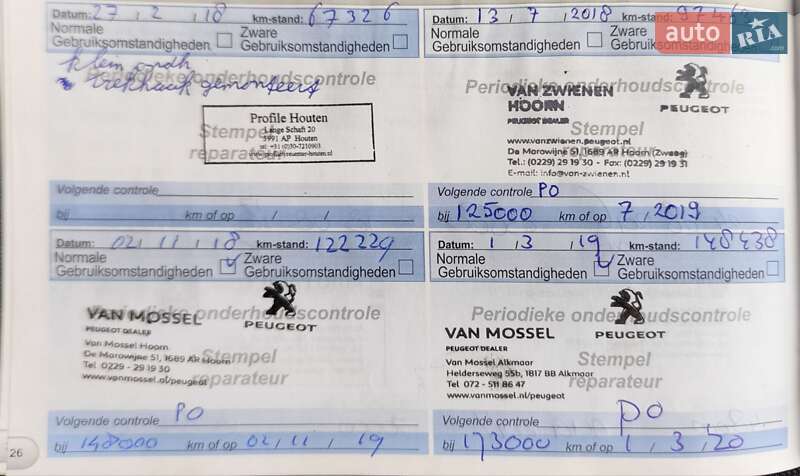 Datum: 27 / 2 / 18 km-stand: 67326
Normale Gebruiksomstandigheden Zware Gebruiksomstandigheden
klein ondh
trekhaak gemonteerd
Periodieke onderhoudscontrole
Stempel reparateur
Profile Houten
Lange Schaft 20
3991 AP Houten
tel: +31 (0)30-7210903
Volgende controle
bij km of op / /
Datum: 13 / 7 / 2018 km-stand:
Normale Gebruiksomstandigheden Zware Gebruiksomstandigheden
autoRIA.com
Periodieke onderhoudscontrole
VAN ZWIENEN
HOORN
PEUGEOT DEALER
PEUGEOT
Stempel reparateur
www.vanzwienen.peugeot.nl
De Marowijne 51, 1689 AR Hoorn (Zwaag)
Tel.: (0229) 29 19 30 - Fax: (0229) 29 19 31
E-mail: info@van-zwienen.nl
Volgende controle PO
bij 125000 km of op 7 / 2019
Datum: 02 / 11 / 18 km-stand: 122229
Normale Gebruiksomstandigheden Zware Gebruiksomstandigheden
Periodieke onderhoudscontrole
VAN MOSSEL
PEUGEOT DEALER
PEUGEOT
Van Mossel Hoorn
De Marowijne 51, 1689 AR Hoorn
Tel 0229 - 29 19 30
www.vanmossel.nl/peugeot
Stempel reparateur
Volgende controle PO
bij 148000 km of op 02 / 11 / 19
Datum: 1 / 3 / 19 km-stand: 148438
Normale Gebruiksomstandigheden Zware Gebruiksomstandigheden
Periodieke onderhoudscontrole
VAN MOSSEL
PEUGEOT DEALER
PEUGEOT
Van Mossel Alkmaar
Helderseweg 55b, 1817 BB Alkmaar
Tel 072 - 511 86 47
www.vanmossel.nl/peugeot
Stempel reparateur
Volgende controle po
bij 173000 km of op 1 / 3 / 20
26